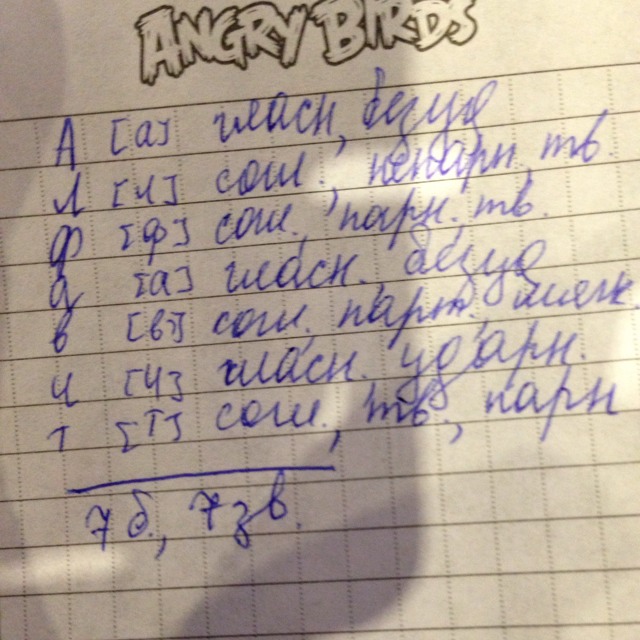 ANGRY BIRDS
А [а] гласн, безуд
Л [л] согл., непарн, тв.
ф [ф] согл., парн. тв.
а [а] гласн. безуд
в [в] согл. парн. мягк.
и [и] гласн. ударн.
т [т] согл., тв, парн
7 б., 7 зв.